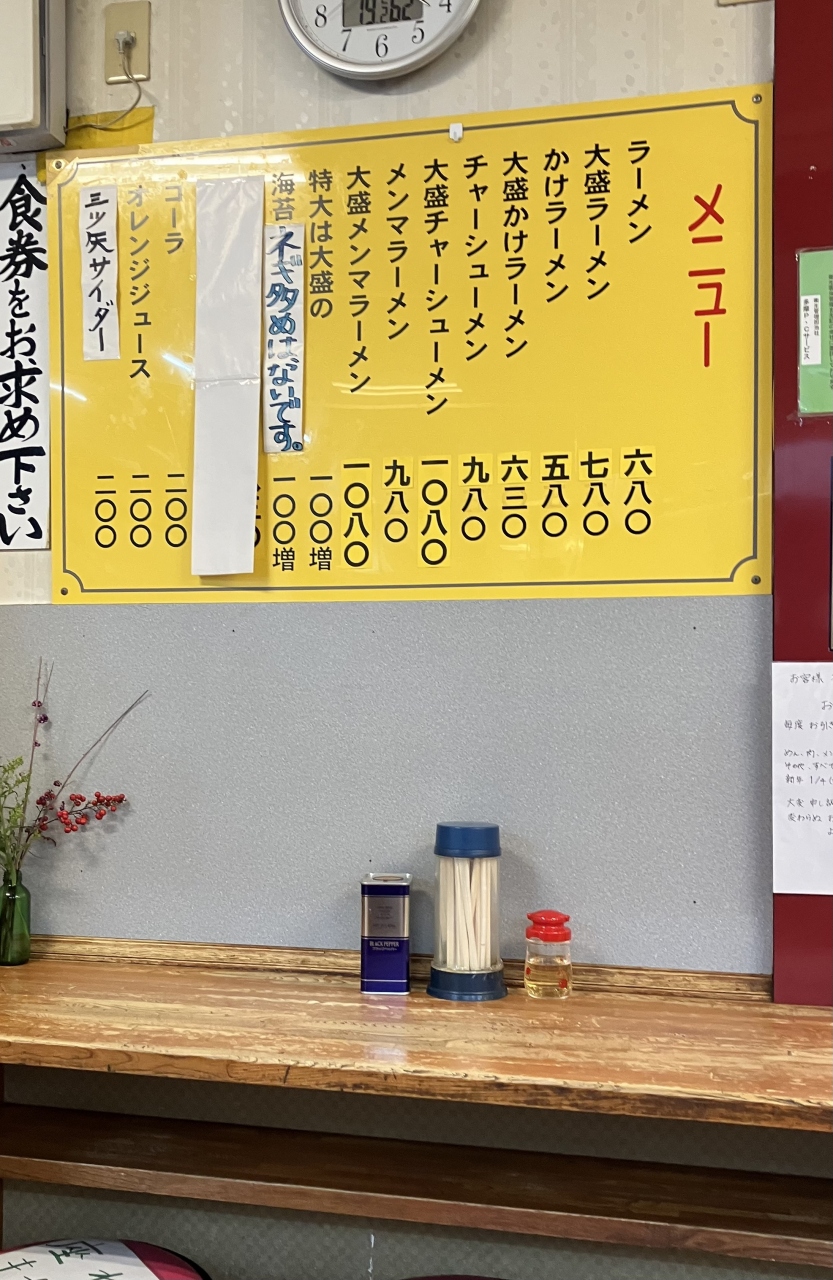 メニュー
ラーメン 六八〇
大盛ラーメン 七八〇
かけラーメン 五八〇
大盛かけラーメン 六三〇
チャーシューメン 九八〇
大盛チャーシューメン 一〇八〇
メンマラーメン 九八〇
大盛メンマラーメン 一〇八〇
特大は大盛の 一〇〇増
海苔 ネギ多めはないです。 一〇〇増
コーラ 二〇〇
オレンジジュース 二〇〇
三ツ矢サイダー 二〇〇
食券をお求め下さい
8 7 6 5 4
多摩P・Cサービス
お客様
毎度
BLACK PEPPER